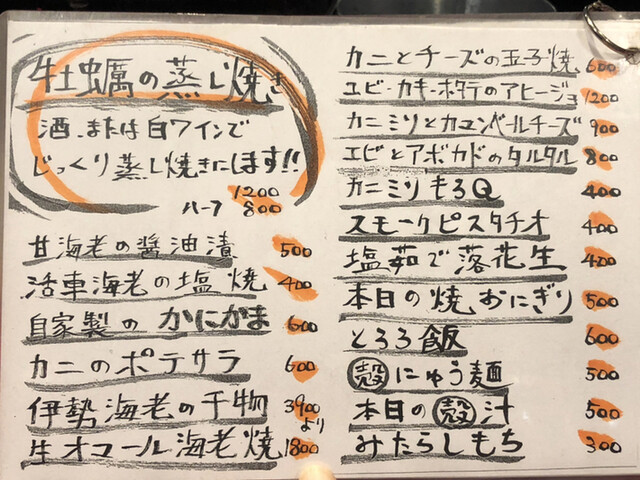 牡蠣の蒸し焼き
酒、または白ワインで
じっくり蒸し焼きにします!!
1200
ハーフ 800
甘海老の醤油漬 500
活車海老の塩焼 400
自家製のかにがま 600
カニのポテサラ 600
伊勢海老の干物 3900より
生オコール海老焼 1800
カニとチーズの玉子焼 600
エビ・カキ・ホタテのアヒージョ 1200
カニミソとカマンベールチーズ 900
エビとアボカドのタルタル 800
カニミソもろQ 400
スモークピスタチオ 400
塩茹で落花生 400
本日の焼おにぎり 500
とろろ飯 600
殻にゅう麺 500
本日の殻汁 500
みたらしもち 300